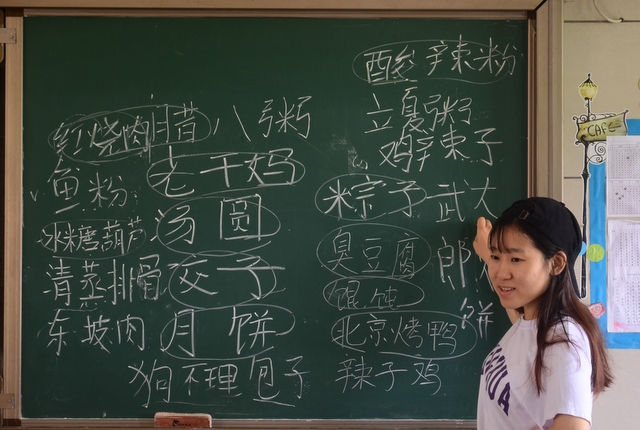 酸辣粉
红烧肉 腊八粥 立夏粥
鸡辣子
鱼粉 老干妈 粽子 武大郎饼
冰糖葫芦 汤圆 臭豆腐
清蒸排骨 交子 馄饨
东坡肉 月饼 北京烤鸭
狗不理包子 辣子鸡
CAFE